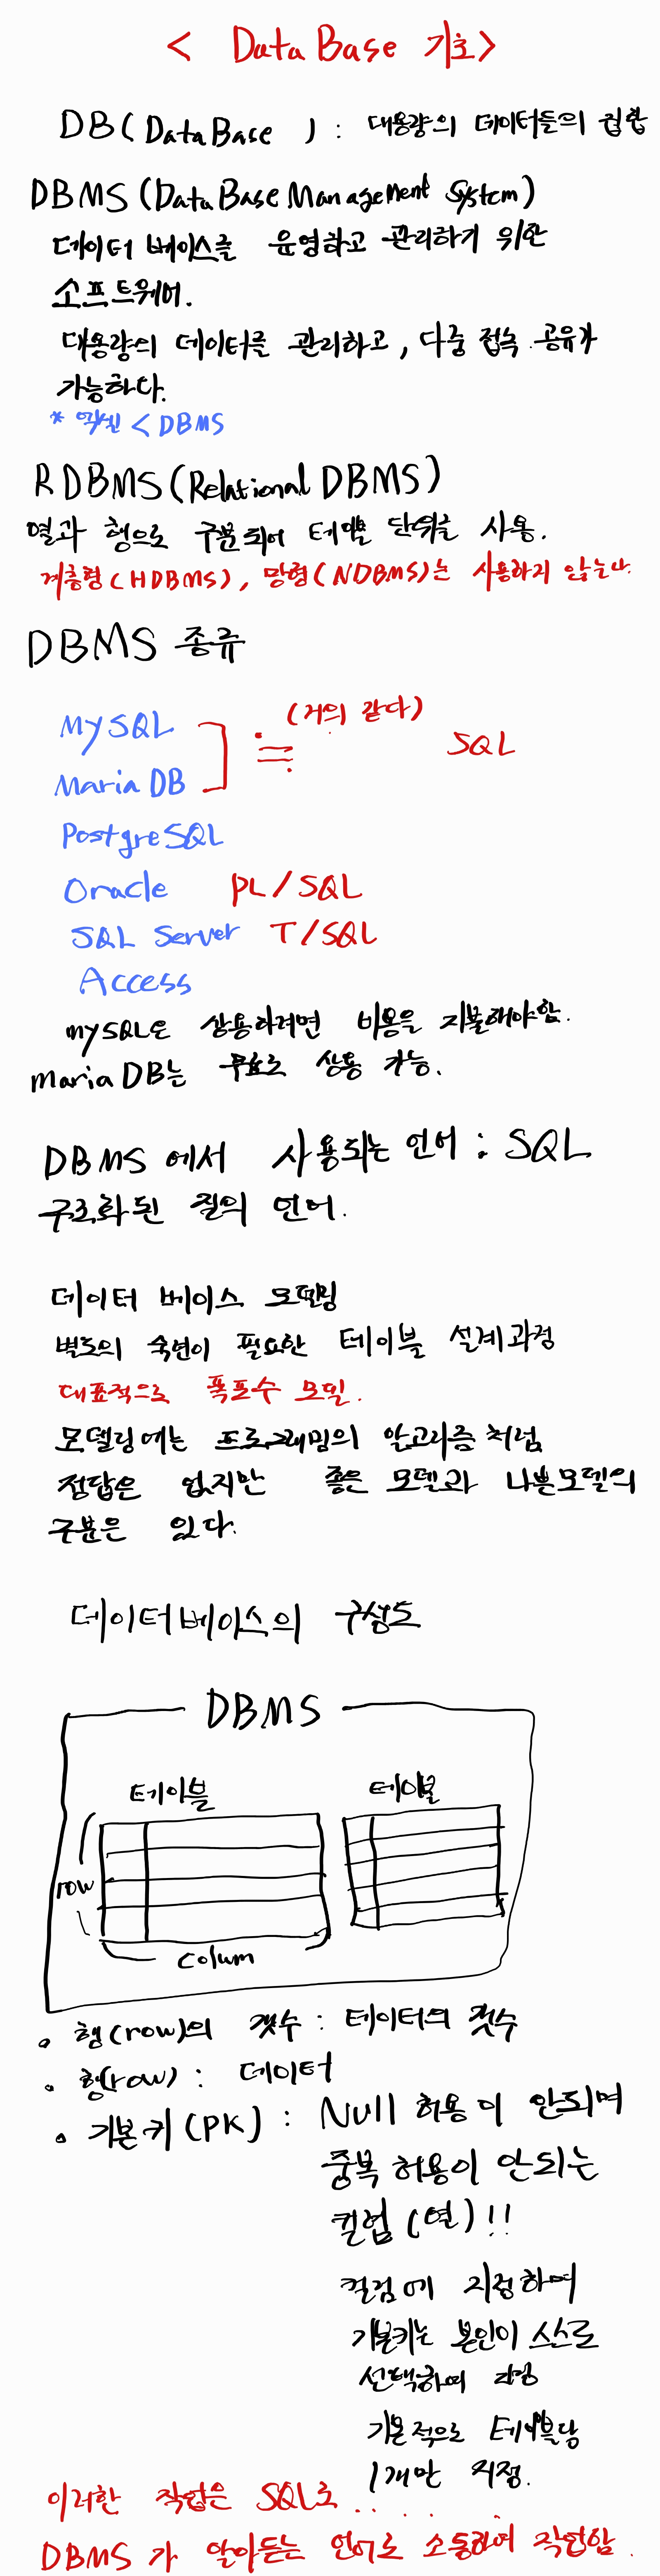 < DataBase 기초>
DB(DataBase ) : 대용량의 데이터들의 집합
DBMS (DataBase Management System)
데이터 베이스를 운영하고 관리하기 위한
소프트웨어.
대용량의 데이터를 관리하고, 다중 접속 공유가
가능하다.
* 엑셀 < DBMS
RDBMS(Relational DBMS)
열과 행으로 구분되어 테이블 단위를 사용.
계층형(HDBMS), 망형(NDBMS)는 사용하지 않는다.
DBMS 종류
MySQL
(거의 같다)
≒
SQL
Maria DB
PostgreSQL
Oracle PL/SQL
SQL Server T/SQL
Access
mySQL은 상용하려면 비용을 지불해야함.
maria DB는 무료로 상용 가능.
DBMS 에서 사용되는 언어 : SQL
구조화된 질의 언어.
데이터 베이스 모델링
별도의 숙련이 필요한 테이블 설계과정
대표적으로 폭포수 모델.
모델링에는 프로그래밍의 알고리즘처럼
정답은 없지만 좋은 모델과 나쁜모델의
구분은 있다.
데이터베이스의 구성도
DBMS
테이블 테이블
row
Colum
• 행(row)의 갯수 : 데이터의 갯수
• 행(row) : 데이터
• 기본키(PK) : Null 허용이 안되며
중복 허용이 안되는
컬럼(열)!!
컬럼에 지정하며
기본키는 본인이 스스로
선택하여
기본적으로 테이블당
1개만 지정.
이러한 작업은 SQL로......
DBMS가 알아듣는 언어로 소통하여 작업함.